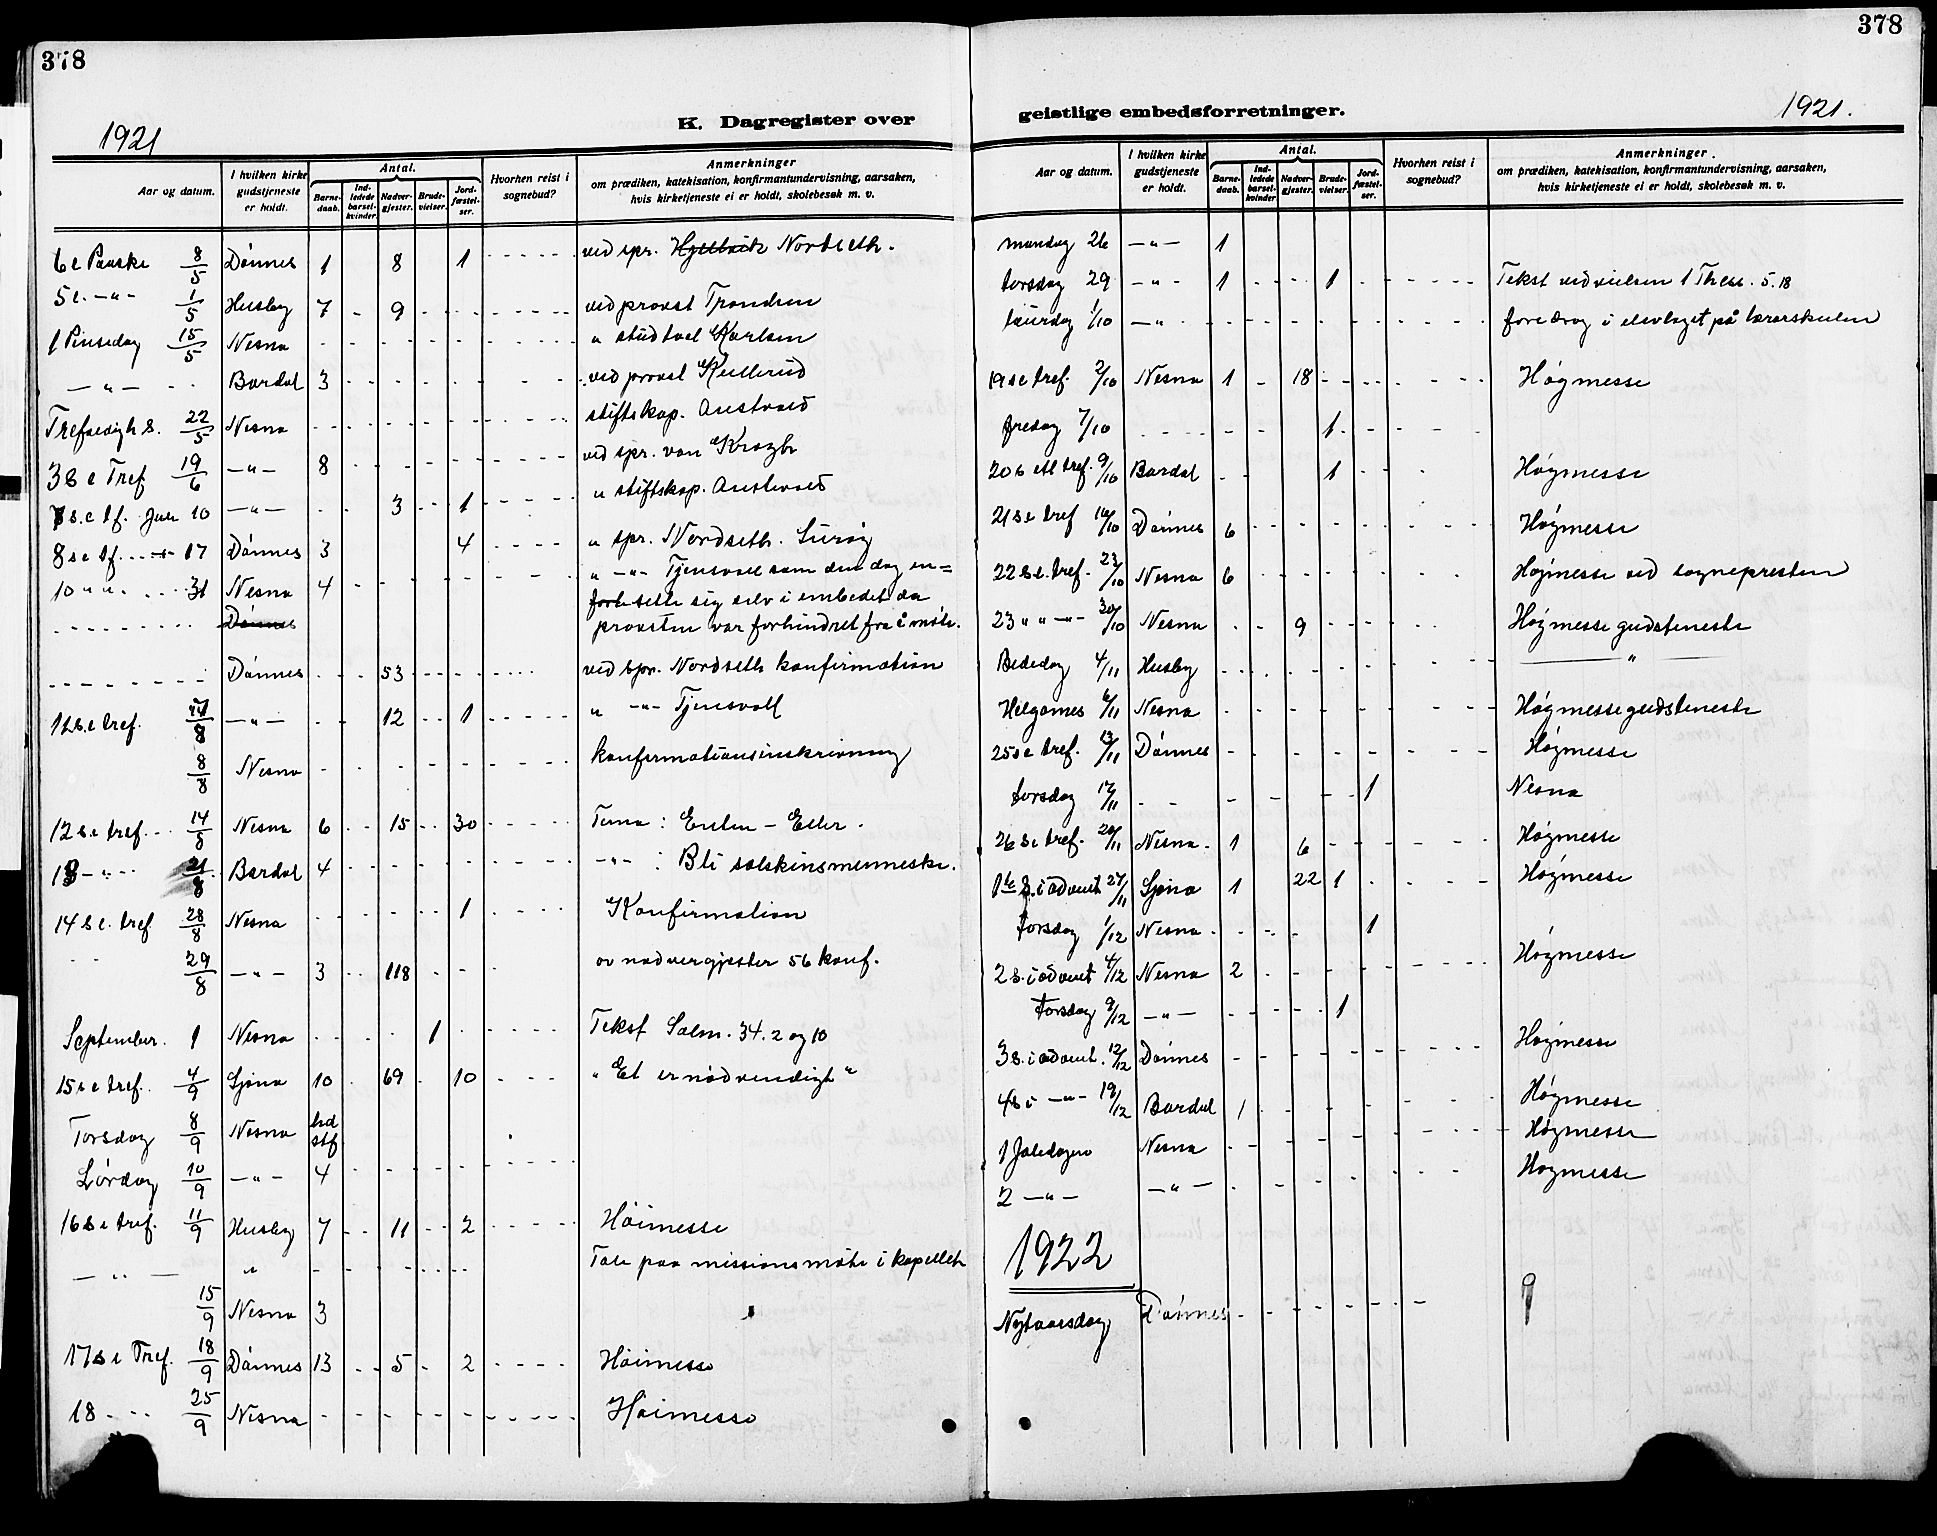 378
378
K. Dagregister over geistlige embedsforretninger.
1921
1921.
Aar og datum. I hvilken kirke gudstjeneste er holdt. Antal. Barne-daab. Ind-ledede barsel-kvinder. Nadver-gjester. Brude-vielser. Jord-fæstel-ser. Hvorhen reist i sognebud? Anmerkninger om prædiken, katekisation, konfirmantundervisning, aarsaken, hvis kirketjeneste ei er holdt, skolebesøk m. v.
6 e Paaske 8/5 Dønnes 1 8 1 ved spr. Hjellvik Nordseth.
5 e. -"- 1/5 Husby 7 - 9 ved provst Trondsen
1 Pinsedag 15/5 Nesna " stud teol Karlsen
-"- Bardal 3 ved provst Kullerud
Trefoldigh s. 22/5 Nesna stiftskap. Austvold
3 S e Tref 19/6 -"- 8 ved spr. von Krogh
7 s. e tf. Juli 10 -"- 3 1 " stiftskap.
8 s e tf. -"- 17 Dønnes 3 4 " spr. Nordseth. Lurøy
10 " " 31 Nesna 4 " -"- Tjensvoll som den dag en=
Dønnes forb sette sig selv i embedet da
provsten var forhindret fra å møte.
Dønnes 53 ved spr. Nordseth konfirmation
11 s. e tref. 8 -"- 12 1 " -"- Tjensvoll
8/8 Nesna konfirmationsinskrivning
12 s e tref. 14/8 Nesna 6 15 30 Tema: Enten - Eller.
13 -"- 21/8 Bardal 4 -"- : Bli solskinsmenneske.
14 s e. tref 28/8 Nesna 1 Konfirmation
29/8 -"- 3 118 av nadvergjester 56 konf.
September. 1 Nesna 1 Tekst Salm. 34. 2 og 10
15 s e tref. 4/9 Sjona 10 69 10 "Et er nødvendigt"
Torsdag 8/9 Nesna hd stf
Lördag 10/9 -"- 4
16 s e tref. 11/9 Husby 7 11 2 Høimesse
-"- " Tale paa missionsmøte i kapellet
15/9 Nesna 3
17 s e Tref. 18/9 Dønnes 13 5 2 Høimesse
18 25/9 Nesna Høimesse
Aar og datum. I hvilken kirke gudstjeneste er holdt. Antal. Barne-daab. Ind-ledede barsel-kvinder. Nadver-gjester. Brude-vielser. Jord-fæstel-ser. Hvorhen reist i sognebud? Anmerkninger. om prædiken, katekisation, konfirmantundervisning, aarsaken, hvis kirketjeneste ei er holdt, skolebesøk m. v.
mandag 26 -"- 1
torsdag 29 -"- 1 1 Tekst ved vielsen 1 Thess. 5. 18
laurdag 1/10 -"- foredrag i elevlaget på lærarskulen
19 s e tref. 2/10 Nesna 1 - 18 Høgmesse
fredag 7/10 1
20 s ett tref. 9/10 Bardal 1 Høgmesse
21 s e tref 16/10 Dønnes 6 Høgmesse
22 s. e. tref. 23/10 Nesna 6 Høgmesse ved sognepresten
23 " " -"- 30/10 Nesna 9 Høgmessegudsteneste
Bededag 4/11 Husby "
Helgames 6/11 Nesna Høgmessegudsteneste
25 s e tref. 13/11 Dønnes Høgmesse
torsdag 17/11 1 Nesna
26 s e tref. 20/11 Nesna. 1 6 Høgmesse
1te S. i advent 27/11 Sjona 1 22 1 Høgmesse
torsdag 1/12 Nesna 1
2 s. i advent 4/12 Nesna 2 Høgmesse
Torsdag 9/12 -"- 1
3 s. i advent. 12/12 Dønnes Høgmesse
4 s i -"- 19/12 Bardal 1 Høgmesse
1 Joledagen Nesna Høgmesse
2 -"- -"- Høgmesse
1922
Nytaarsdag Dønnes